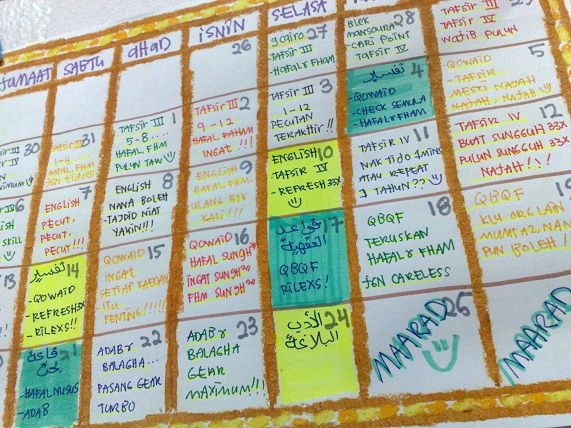 JUMAAT
SABTU
AHAD
ISNIN
SELASA
26
27
TAFSIR III
HAFAL & FHAM
28
BLEK
MANSOURA
CARI POINT
TAFSIR IV
TAFSIR III
WAJIB PULUN
30
31
TAFSIR III
1-4
HAFAL FHM
JGN TIDO
1
TAFSIR III
5-8....
HAFAL FHM
PULUN TAW
2
TAFSIR III
9-12
HAFAL FAHAM
INGAT !!!
3
TAFSIR III
1-12
PECUTAN
TERAKHIR!!
4
تفسير
-QOWAID
-CHECK SEMULA
-HAFAL & FHAM
5
QOWAID
-TAFSIR..
MESTI NAJAH
NAJAH, NAJAH
6
7
ENGLISH
PECUT,
PECUT,
PECUT!!!
8
ENGLISH
NANA BOLEH
-TAJDID NIAT
YAKIN!!!
9
ENGLISH
HAFAL FHM
ULANG BYK
KALI!!!
10
ENGLISH
TAFSIR IV
-REFRESH 33X
11
TAFSIR IV
NAK TIDO 1MINS
ATAU REPEAT
1 TAHUN??
12
TAFSIR IV
BUAT SUNGGUH 33X
PULUN SUNGGUH 33X
NAJAH!!!
13
14
تفسير
-QOWAID
-REFRESH 33X
-RILEXS!!
15
QOWAID
INGAT
SETIAP KAEDAH
-ITU-
PENTING!!!!!
16
QOWAID
HAFAL SUNGH²
INGAT SUNGH²
FHM SUNGH²
17
قواعد
الفقهية
QBQF
RILEXS!
18
QBQF
TERUSKAN
HAFAL & FHAM
JGN CARELESS
19
QBQF
KLU ORG LAIN
MUMTAZ NAN
PUN BOLEH!
21
-HAFAL NUSUS
-ADAB
22
ADAB &
BALAGHA...
PASANG GEAR
TURBO
23
ADAB &
BALAGHA
GEAR
MAXIMUM!!!
24
الأدب
البلاغة
25
MAARAD
MAARAD